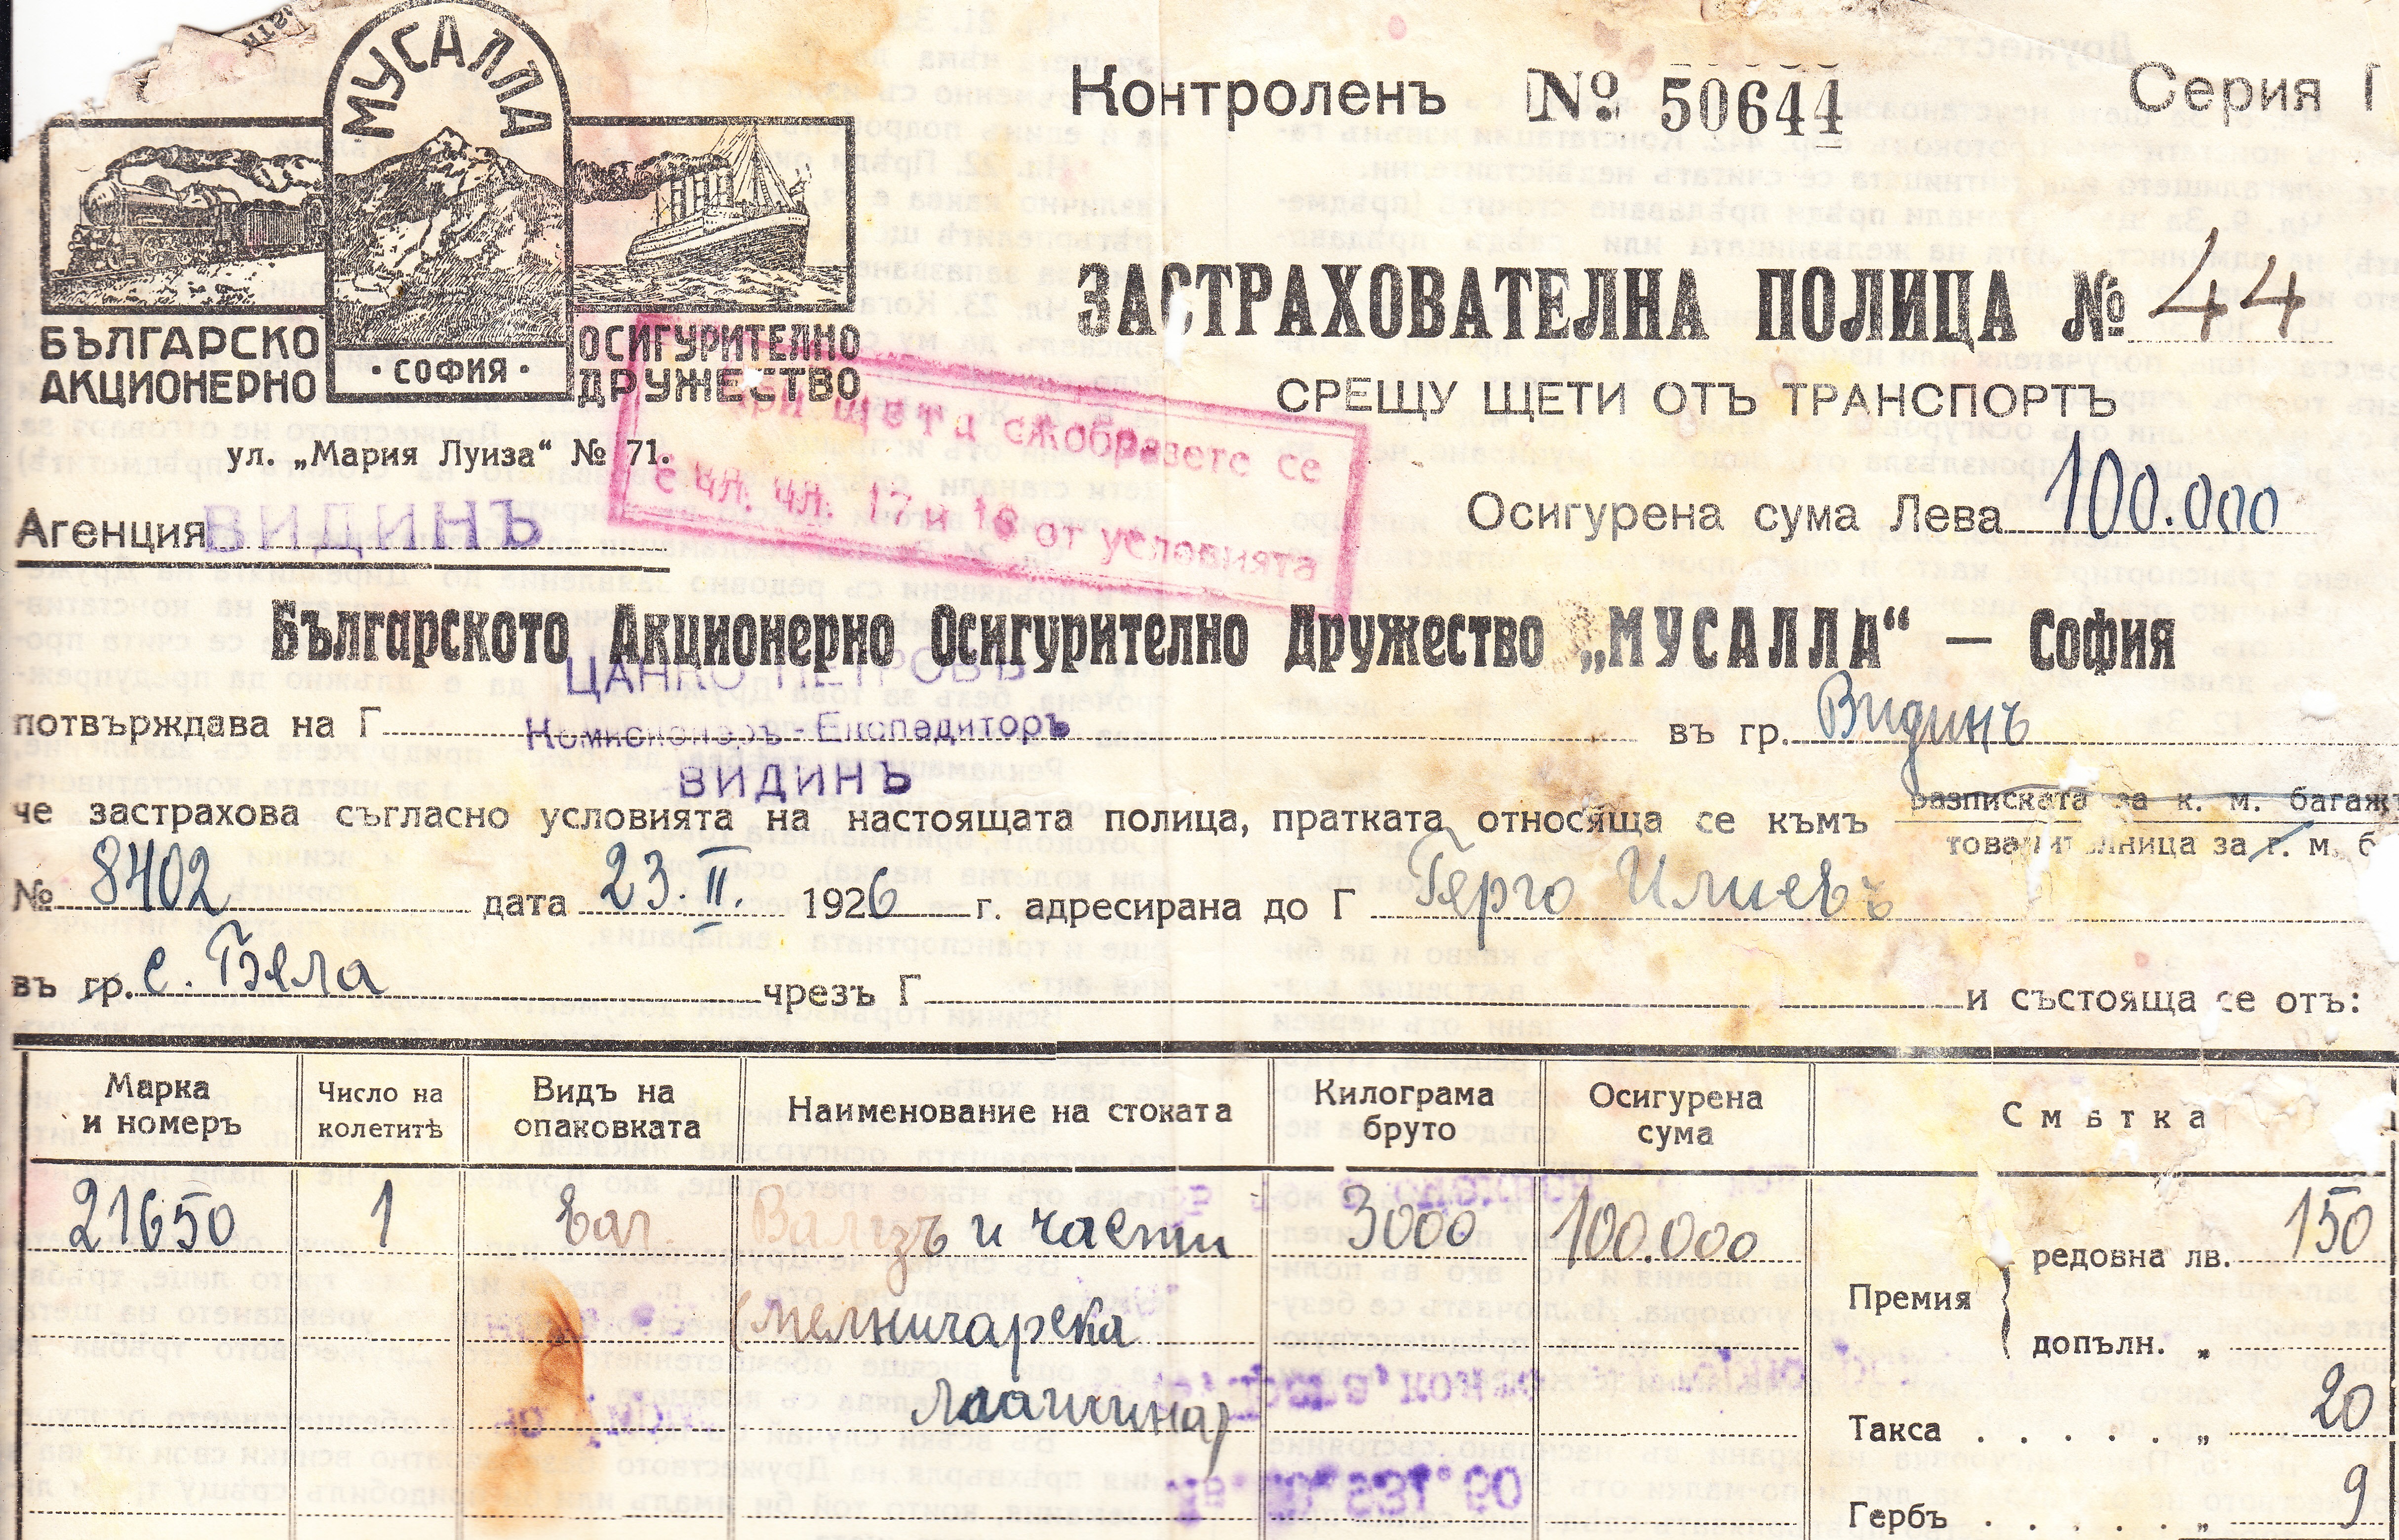 МУСАЛЛА
БЪЛГАРСКО АКЦИОНЕРНО
· СОФИЯ ·
ОСИГУРИТЕЛНО ДРУЖЕСТВО
ул. „Мария Луиза“ № 71.
Агенция ВИДИНЪ
Контроленъ № 50644
Серия I
ЗАСТРАХОВАТЕЛНА ПОЛИЦА № 44
СРЕЩУ ЩЕТИ ОТЪ ТРАНСПОРТЪ
При щета съобразете се
с чл. чл. 17 и 18 от условията
Осигурена сума Лева 100.000
Българското Акционерно Осигурително Дружество „МУСАЛЛА“ — София
ЦАНКО ПЕТРОВЪ
потвърждава на Г Комисионеръ-Експедиторъ въ гр. Видинъ
ВИДИНЪ
че застрахова съгласно условията на настоящата полица, пратката относяща се къмъ
разписката за к. м. багажъ
товарителница за г. м. б
№ 8402 дата 23. II. 1926 г. адресирана до Г Герго Илиевъ
въ гр. с. Бяла чрезъ Г и състояща се отъ:
Марка и номеръ
Число на колетитѣ
Видъ на опаковката
Наименование на стоката
Килограма бруто
Осигурена сума
Смѣтка
21650 1 Ваг. Валязъ и части 3000 100.000
мелничарска
машина)
Премия
редовна лв. 150
допълн. „
Такса . . . . . „ 20
Гербъ . . . . . „ 9